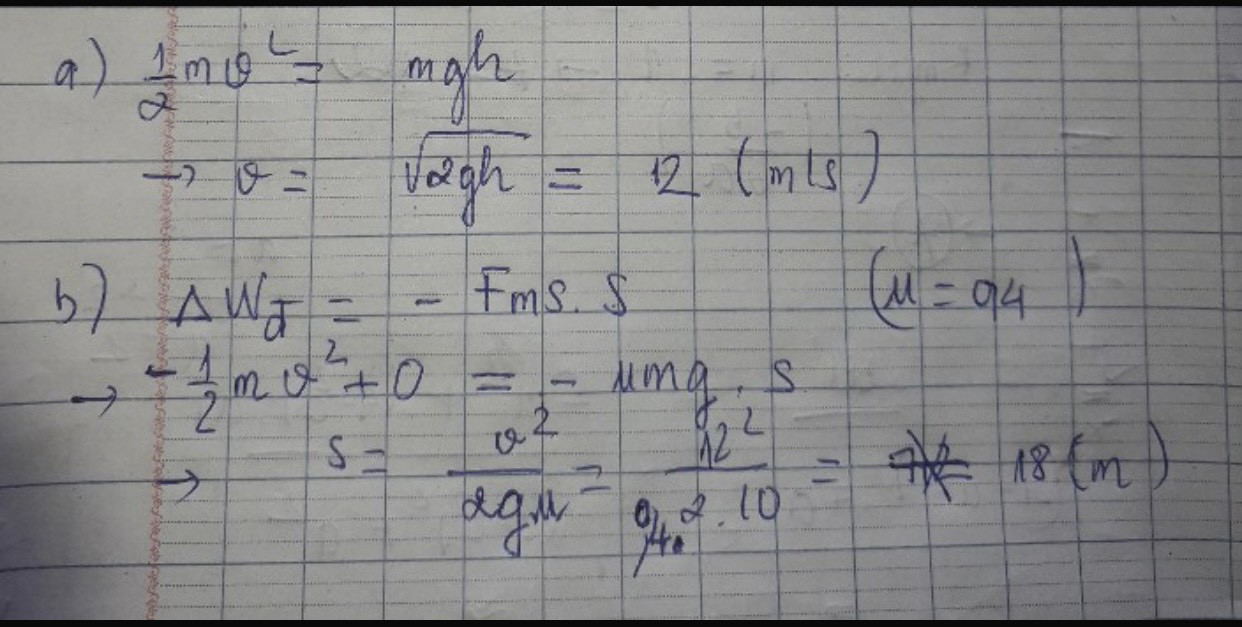 a) 1/2 mv² = mgh
→ v = √2gh = 12 (m/s)
b) ΔWđ = - Fms. S (μ = 0,4)
→ - 1/2 mv² + 0 = - μmg. s
→ s = v²/2gμ = 12²/0,4.2.10 = 18 (m)